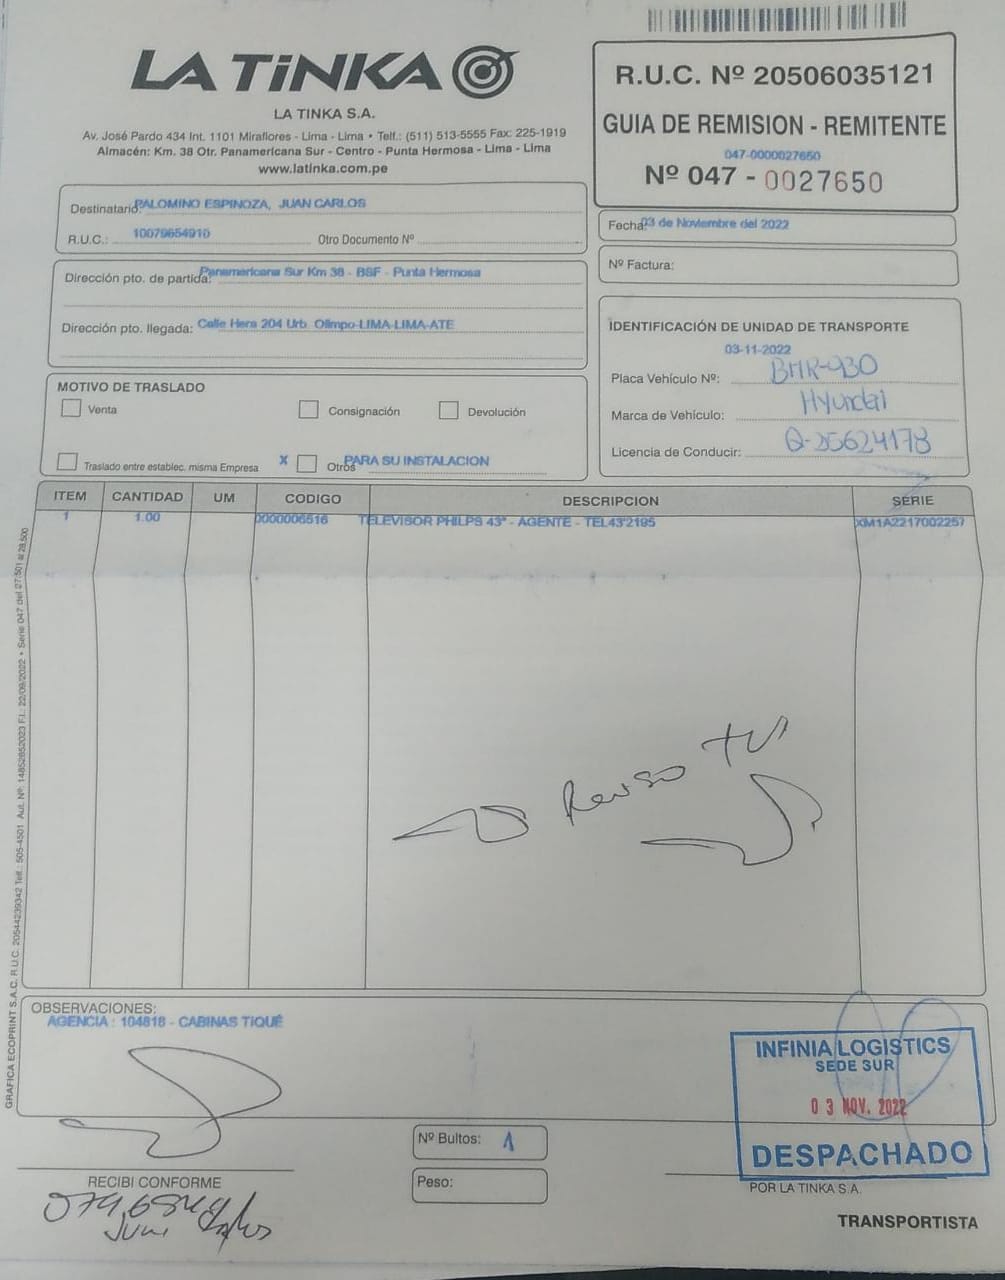 LA TiNKA
LA TINKA S.A.
Av. José Pardo 434 Int. 1101 Miraflores - Lima - Lima • Telf.: (511) 513-5555 Fax: 225-1919
Almacén: Km. 38 Otr. Panamericana Sur - Centro - Punta Hermosa - Lima - Lima
www.latinka.com.pe
R.U.C. Nº 20506035121
GUIA DE REMISION - REMITENTE
047-0000027650
Nº 047 - 0027650
Destinatario: PALOMINO ESPINOZA, JUAN CARLOS
R.U.C.: 10079654910 Otro Documento Nº
Fecha: 03 de Noviembre del 2022
Nº Factura:
Dirección pto. de partida: Panamericana Sur Km 38 - BSF - Punta Hermosa
Dirección pto. llegada: Calle Hera 204 Urb. Olimpo-LIMA-LIMA-ATE
IDENTIFICACIÓN DE UNIDAD DE TRANSPORTE
03-11-2022
Placa Vehículo Nº: BHR-930
Marca de Vehículo: Hyundai
Licencia de Conducir: Q-25624178
MOTIVO DE TRASLADO
Venta Consignación Devolución
Traslado entre establec. misma Empresa X Otros PARA SU INSTALACION
ITEM CANTIDAD UM CODIGO DESCRIPCION SERIE
1 1.00 0000006516 TELEVISOR PHILPS 43" - AGENTE - TEL43'2195 XM1A2217002257
Reviso TV
GRAFICA ECOPRINT S.A.C. R.U.C. 20544239342 Telf.: 505-4501 Aut. Nº: 14852852023 F.I.: 22/09/2022 • Serie 047 del 27,501 al 28,500
OBSERVACIONES:
AGENCIA : 104818 - CABINAS TIQUÉ
INFINIA LOGISTICS
SEDE SUR
03 NOV. 2022
DESPACHADO
Nº Bultos: 1
Peso:
RECIBI CONFORME
POR LA TINKA S.A.
TRANSPORTISTA